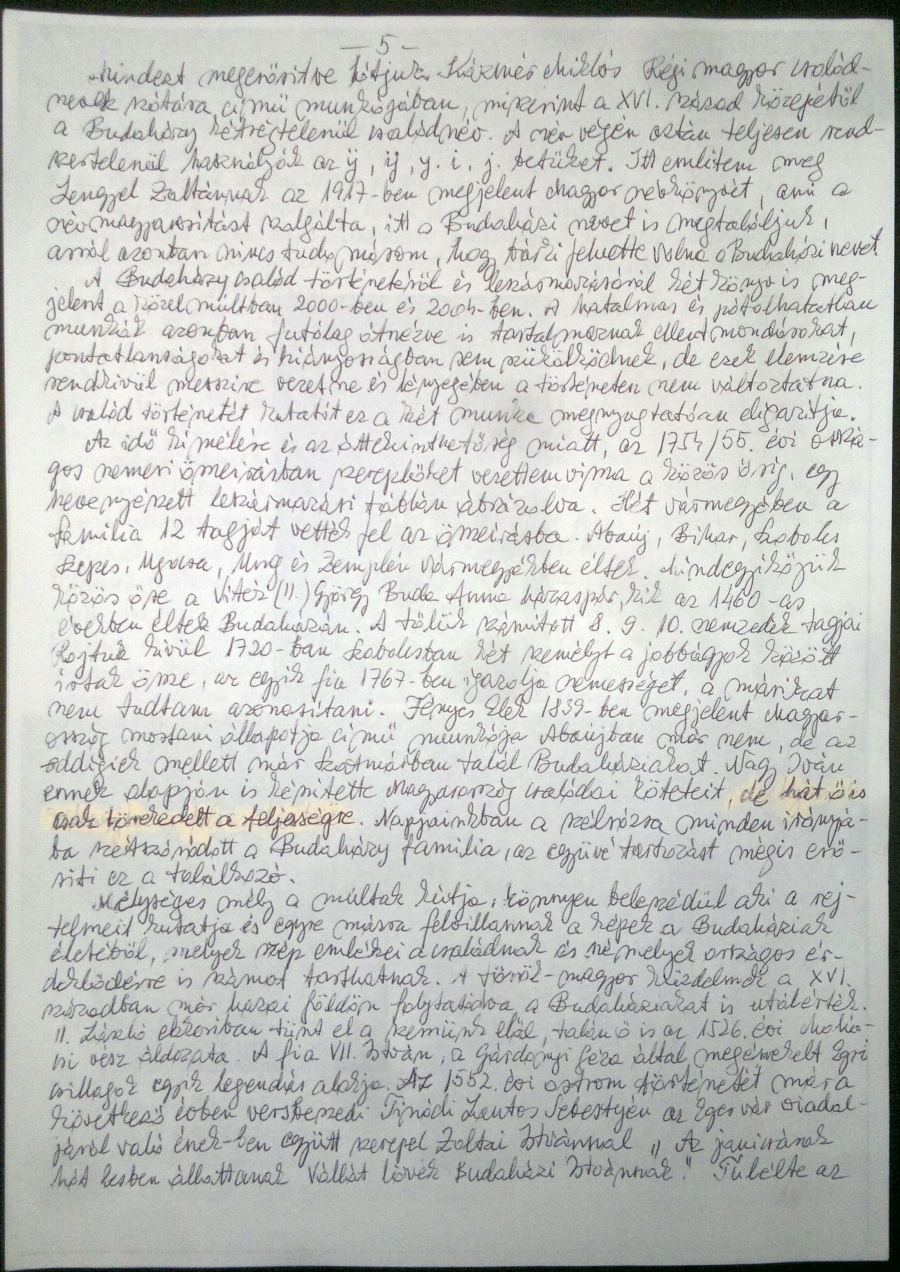 - 5 -
Mindezt megerősítve látjuk Kázmér Miklós Régi magyar család-
nevek szótára című munkájában, miszerint a XVI. század közepétől
a Budaházy kétségtelenül családnév. A név végén aztán teljesen rend-
szertelenül használják az ÿ, ij, y. i, j. betűket. Itt említem meg
Lengyel Zoltánnak az 1917-ben megjelent Magyar névkönyvét, ami a
névmagyarosítást szolgálta, itt a Budaházi nevet is megtaláljuk,
arról azonban nincs tudomásom, hogy bárki felvette volna a Budaházi nevet.
A Budaházy család történetéről és leszármazásáról két könyv is meg-
jelent a közel múltban 2000-ben és 2004-ben. A hatalmas és pótolhatatlan
munkák azonban futólag átnézve is tartalmaznak ellentmondásokat,
pontatlanságokat és hiányosságban sem szűkölködnek, de ezek elemzése
rendkívül messzire vezetne és lényegében a történeten nem változtatna.
A család történetét kutatót ez a két munka megnyugtatóan eligazítja.
Az idő kímélése és az áttekinthetőség miatt, az 1754/55. évi orszá-
gos nemesi összeírásban szereplőket vezettem vissza a közös ősig, egy
hevenyészett leszármazási táblán ábrázolva. Hét vármegyében a
família 12 tagját vették fel az összeírásba. Abaúj, Bihar, Szabolcs
Szepes, Ugocsa, Ung és Zemplén vármegyékben éltek. Mindegyikőjük
közös őse a Vitéz (II.) György Buda Anna házaspár, kik az 1460-as
években éltek Budaházán. A tőlük számított 8. 9. 10. nemzedék tagjai
Rajtuk kívül 1720-ban Szabolcsban két személyt a jobbágyok között
írtak össze, az egyik fia 1767-ben igazolja nemességét, a másikat
nem tudtam azonosítani. Fényes Elek 1839-ben megjelent Magyar-
ország mostani állapotja című munkája Abaujban már nem, de az
addigiek mellett már Szatmárban talál Budaháziakat. Nagy Iván
ennek alapján is készítette Magyarország családai köteteit, de hát ő is
csak törekedett a teljességre. Napjainkban a szélrózsa minden irányjá-
ba szétszóródott a Budaházy família, az együvé tartozást mégis erő-
síti ez a találkozó.
Mélységes mély a múltak kútja, könnyen beleszédül aki a rej-
telmeit kutatja és egyre másra felvillannak a képek a Budaháziak
életéből, melyek szép emlékei a családnak és némelyek országos ér-
deklődésre is számot tarthatnak. A török-magyar küzdelmek a XVI.
században már hazai földön folytatódva, a Budaháziakat is utolérték.
II. László ekkoriban tűnt el a szemünk elől, talán ő is az 1526. évi Mohá-
si vész áldozata. A fia VII. István, a Gárdonyi Géza által megénekelt Egri
csillagok egyik legendás alakja. Az 1552. évi ostrom történetét már a
következő évben versbeszedi Tinódi Lantos Sebestyén az Eger vár viadal-
járól való ének-ben együtt szerepel Zoltai Istvánnal „Az janicsárok
hát lesben állottanak Vállát lövék Budaházi Istvánnak". Túlélte az